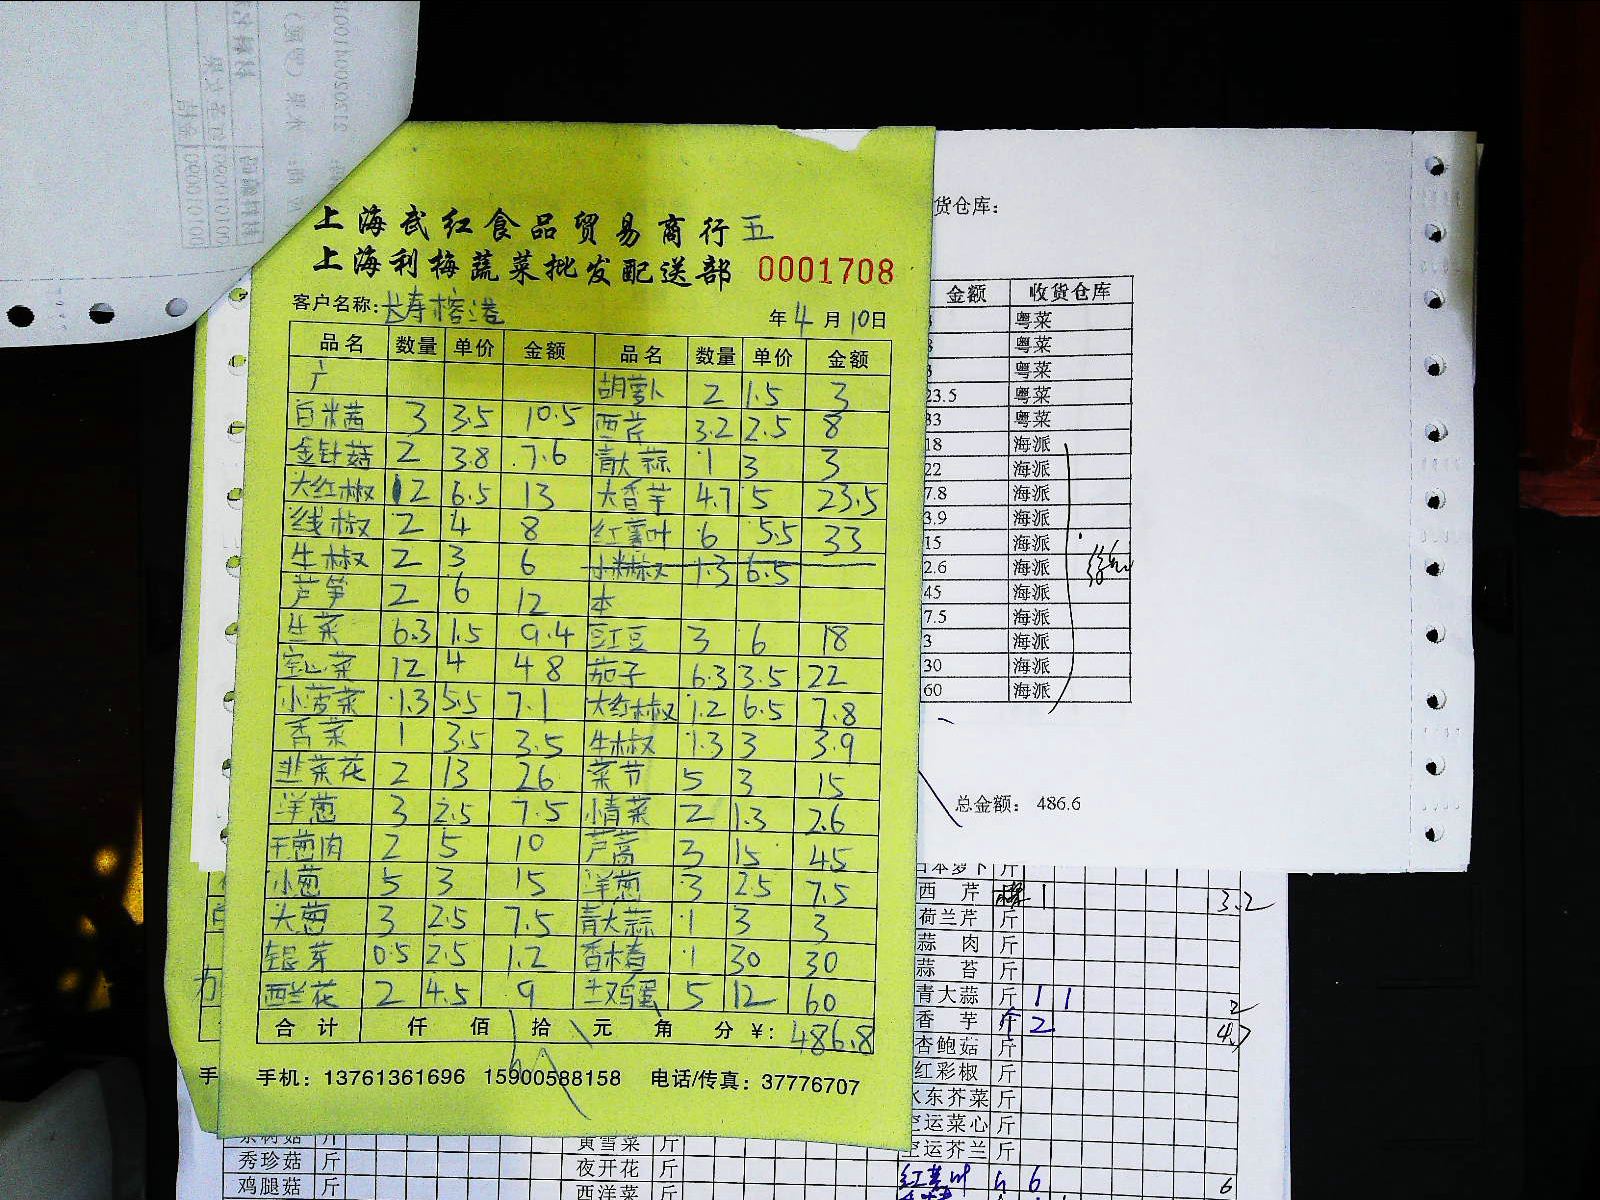 上海武红食品贸易商行 五
上海利梅蔬菜批发配送部 0001708
客户名称: 长寿榕港 年 4 月 10 日
品名 数量 单价 金额 品名 数量 单价 金额
广 胡萝卜 2 1.5 3
白米茜 3 3.5 10.5 西芹 3.2 2.5 8
金针菇 2 3.8 7.6 青大蒜 1 3 3
大红椒 2 6.5 13 大香芋 4.7 5 23.5
线椒 2 4 8 红薯叶 6 5.5 33
牛椒 2 3 6 小米椒 1.3 6.5
芦笋 2 6 12 本
生菜 6.3 1.5 9.4 豇豆 3 6 18
宝山菜 12 4 48 茄子 6.3 3.5 22
小苦菜 1.3 5.5 7.1 大红椒 1.2 6.5 7.8
香菜 1 3.5 3.5 牛椒 1.3 3 3.9
韭菜花 2 13 26 菜节 5 3 15
洋葱 3 2.5 7.5 小青菜 2 1.3 2.6
干葱肉 2 5 10 芦蒿 3 15 45
小葱 5 3 15 洋葱 3 2.5 7.5
大葱 3 2.5 7.5 青大蒜 1 3 3
银芽 0.5 2.5 1.2 香椿 1 30 30
西兰花 2 4.5 9 土鸡蛋 5 12 60
合计 仟 佰 拾 元 角 分 ¥: 486.8
手机: 13761361696 15900588158 电话/传真: 37776707
货仓库:
金额 收货仓库
粤菜
粤菜
粤菜
23.5 粤菜
33 粤菜
18 海派
22 海派
7.8 海派
3.9 海派
15 海派
2.6 海派
45 海派
7.5 海派
3 海派
30 海派
60 海派
总金额: 486.6
日本萝卜 斤
西芹 1 3.2
荷兰芹 斤
蒜肉 斤
蒜苔 斤
青大蒜 斤 1 1 2
香芋 斤 2 4.7
杏鲍菇 斤
红彩椒 斤
水东芥菜 斤
空运菜心 斤
空运芥兰 斤
红薯叶 6 6
黄雪菜 斤
夜开花 斤
西洋菜 斤
秀珍菇 斤
鸡腿菇 斤